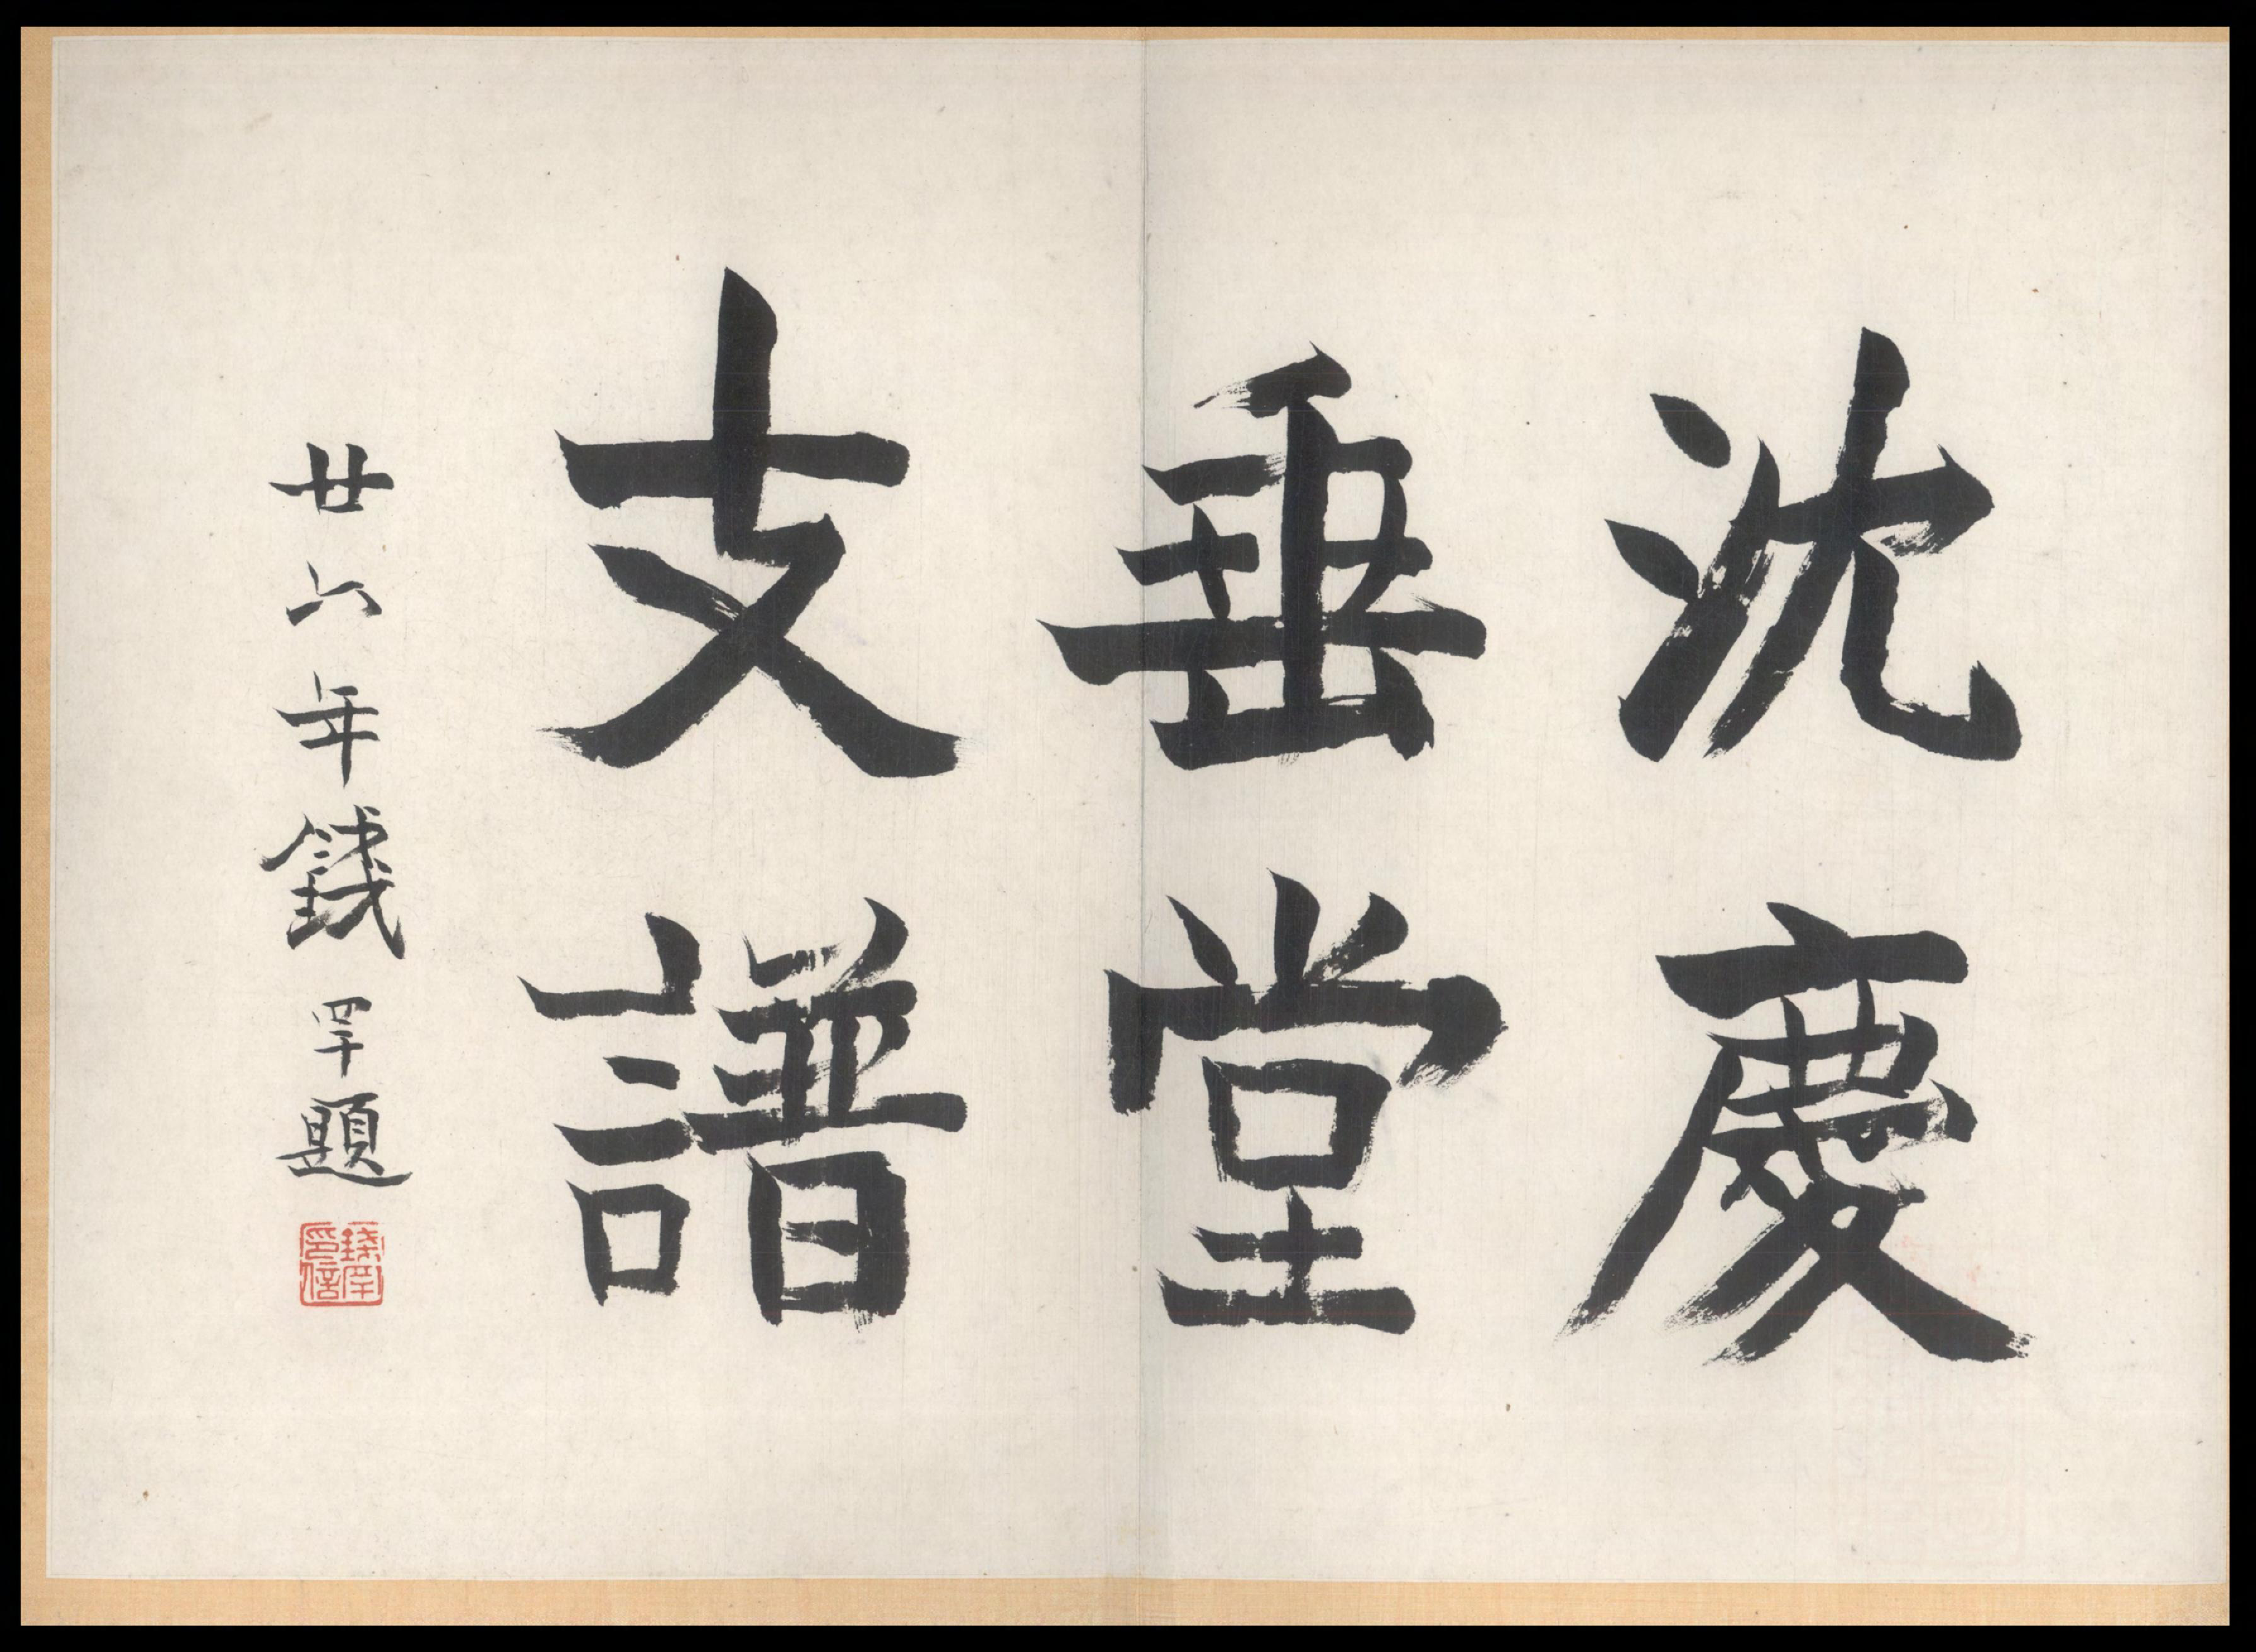 沈慶
垂堂
支譜
廿六年錢罕題
錢罕印信